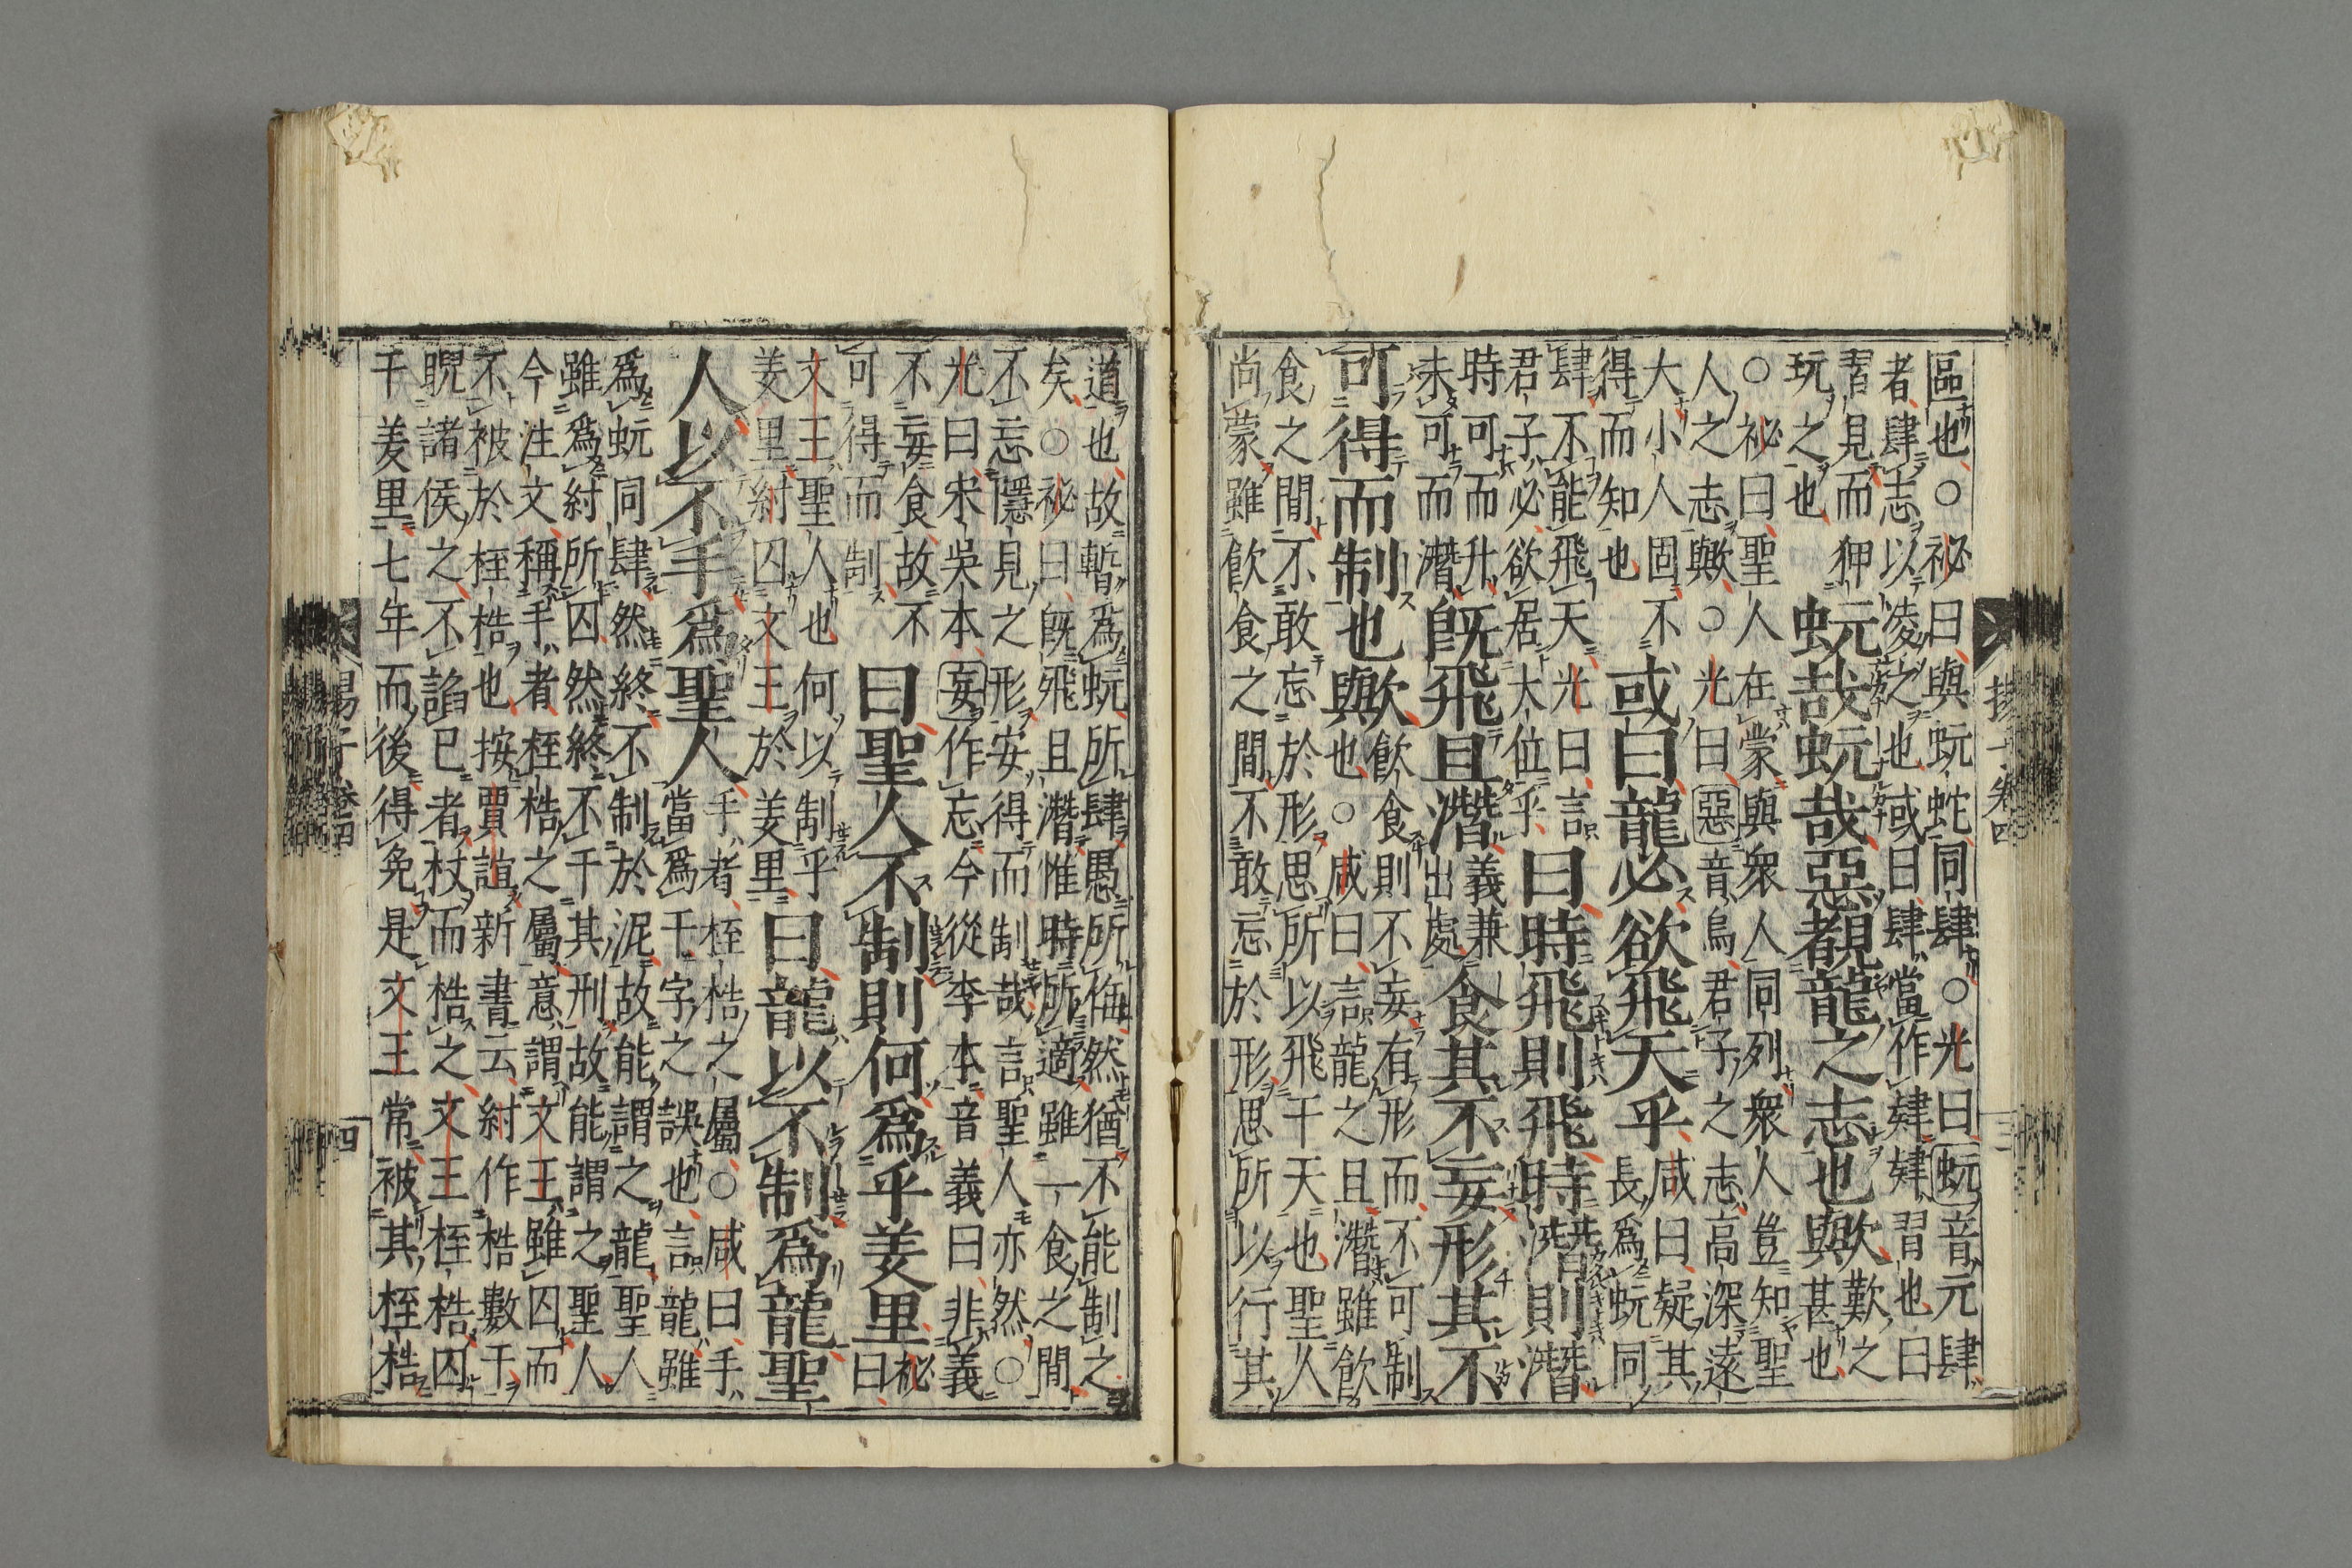 揚子卷四
三
區也○祕曰與蚖蛇同肆○光曰蚖音元肆
者肆志以凌之也或曰肆當作肄肄習也曰
習見而狎
玩之也
蚖哉蚖哉惡覩龍之志也歟
歎之
甚也
○祕曰聖人在蒙與衆人同列衆人豈知聖
人之志歟○光曰惡音烏君子之志高深遠
大小人固不
得而知也
或曰龍必欲飛天乎
咸曰疑其
長爲蚖同
肆不能飛天光曰言
君子必欲居大位乎
曰時飛則飛時潛則潛
時可而升
未可而潛
旣飛且潛
義兼
出處
食其不妄形其不
可得而制也歟
飲食則不妄有形而不可制
也○咸曰言龍之且潛雖飲
食之間不敢忘於形思所以飛于天也聖人
尚蒙雖飮食之間不敢忘於形思所以行其
道也故暫爲蚖所肆愚所侮然猶不能制之
矣○祕曰旣飛且潛惟時所適雖一食之間
不忘隱見之形安得而制哉言聖人亦然○
光曰宋吳本妄作忘今從李本音義曰非義
不妄食故不
可得而制
曰聖人不制則何爲乎羑里
祕
曰
文王聖人也何以制乎
羑里紂囚文王於羑里
曰龍以不制爲龍聖
人以不手爲聖人
手者桎梏之屬○咸曰手
當爲干字之誤也言龍雖
爲蚖同肆然終不制於泥故能謂之龍聖人
雖爲紂所囚然終不干其刑故能謂之聖人
今注文稱手者桎梏之屬意謂文王雖囚而
不被於桎梏也按賈誼新書云紂作梏數千
睨諸侯之不諂已者杖而梏之文王桎梏囚
于羑里七年而後得免是文王常被其桎梏
揚子卷四
四